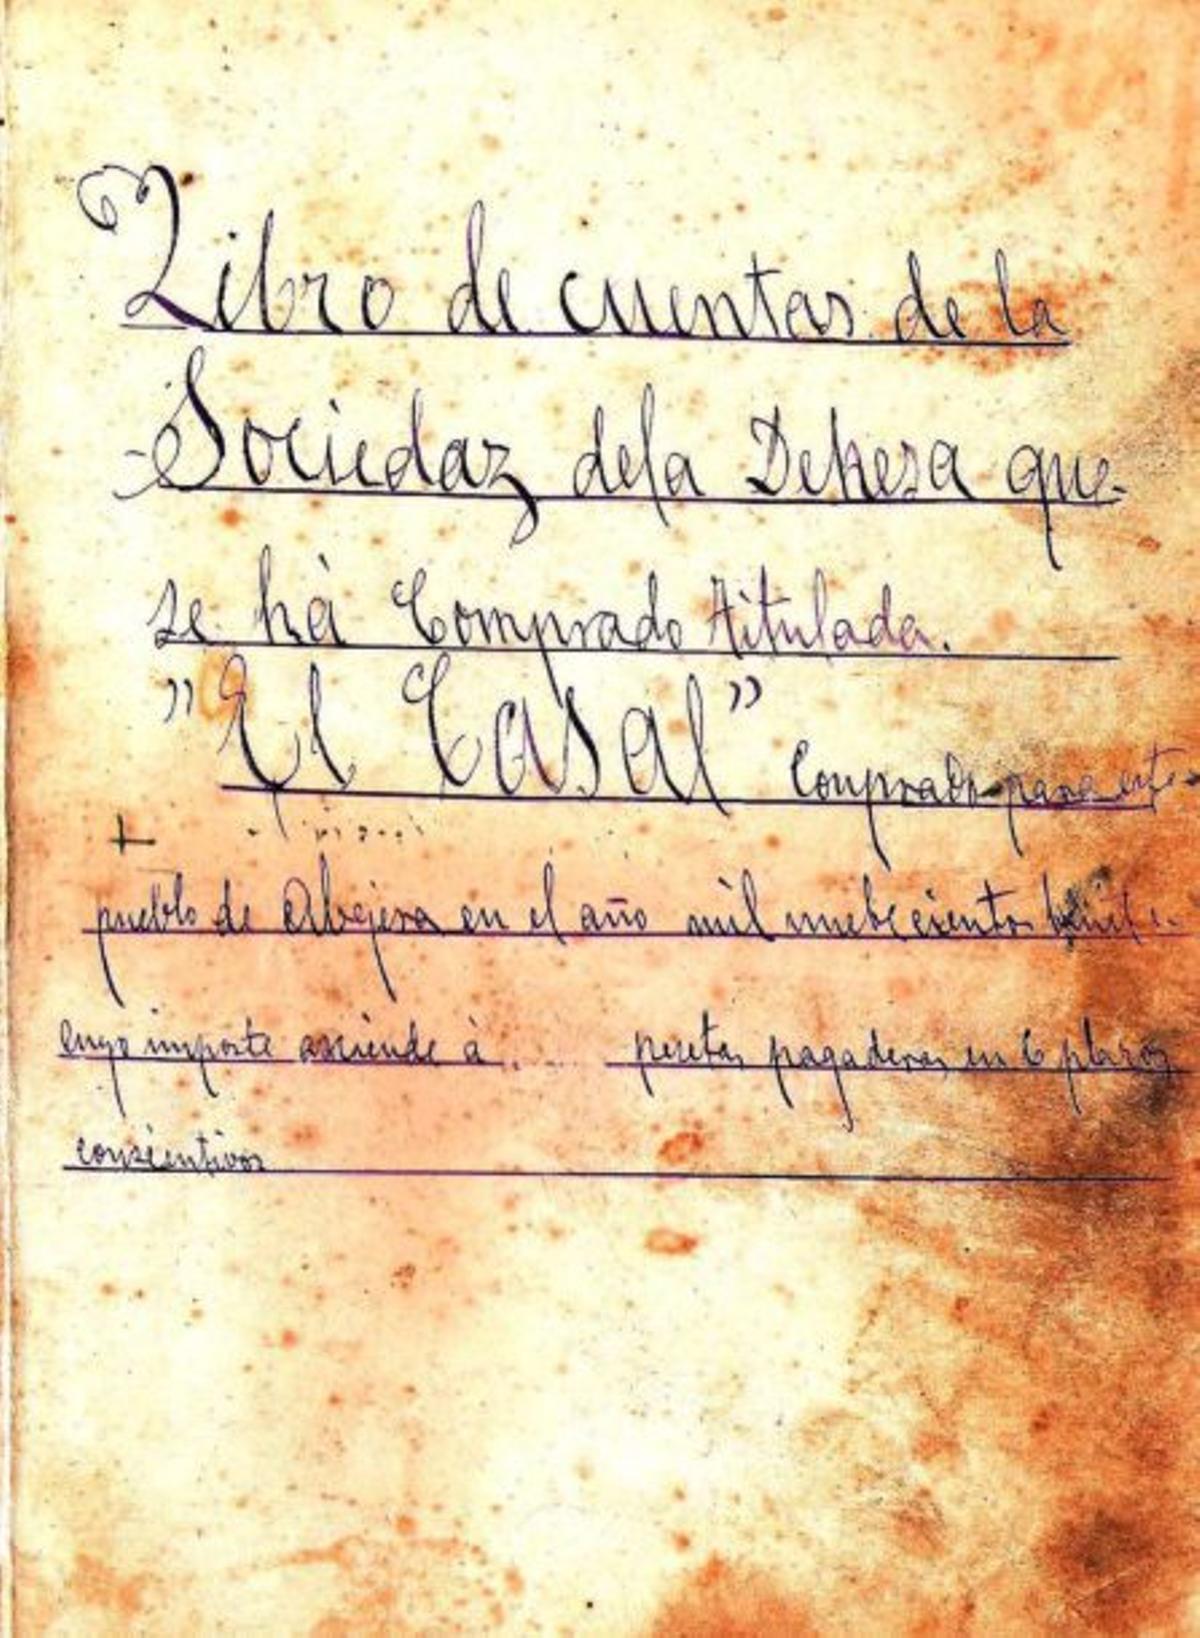 Libro de cuentas de la
Sociedaz dela Dehesa que
se há Comprado titulada.
"El Casal" Comprado para este
pueblo de Abejera en el año mil nuebecientos
cuyo importe asciende à .... pesetas pagaderas en 6 plazos
consecutivos